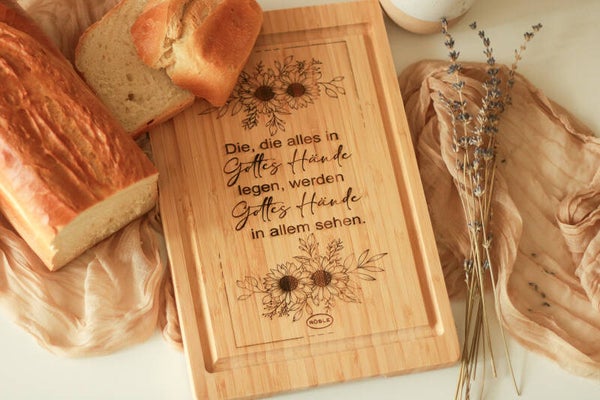 Die, die alles in
Gottes Hände
legen, werden
Gottes Hände
in allem sehen.
NÖBLE